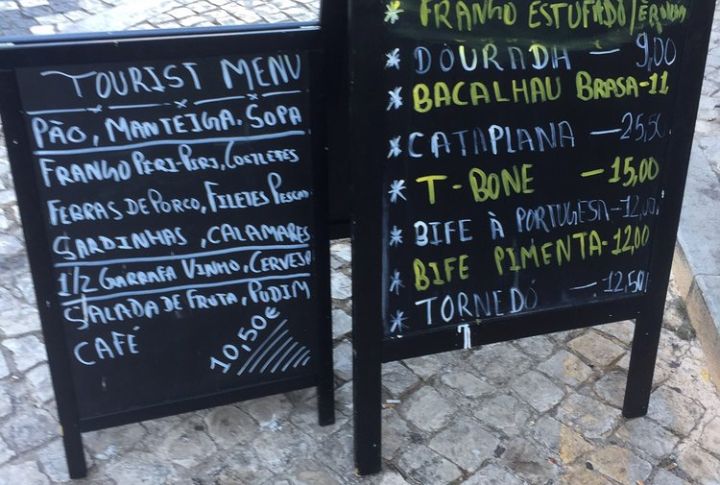 TOURIST MENU
PÃO, MANTEIGA, SOPA
FRANGO PERI-PERI, COSTLETES
FEBRAS DE PORCO, FILETES PESCAD
SARDINHAS, CALAMARES
1/2 GARRAFA VINHO, CERVEJA
SALADA DE FRUTA, PUDIM
CAFÉ
10,50€
* FRANGO ESTUFADO/
* DOURADA - 9,00
* BACALHAU BRASA - 11,
* CATAPLANA - 25,50
* T-BONE - 15,00
* BIFE À PORTUGESA - 12,00
* BIFE PIMENTA - 12,00
* TORNEDÓ - 12,50